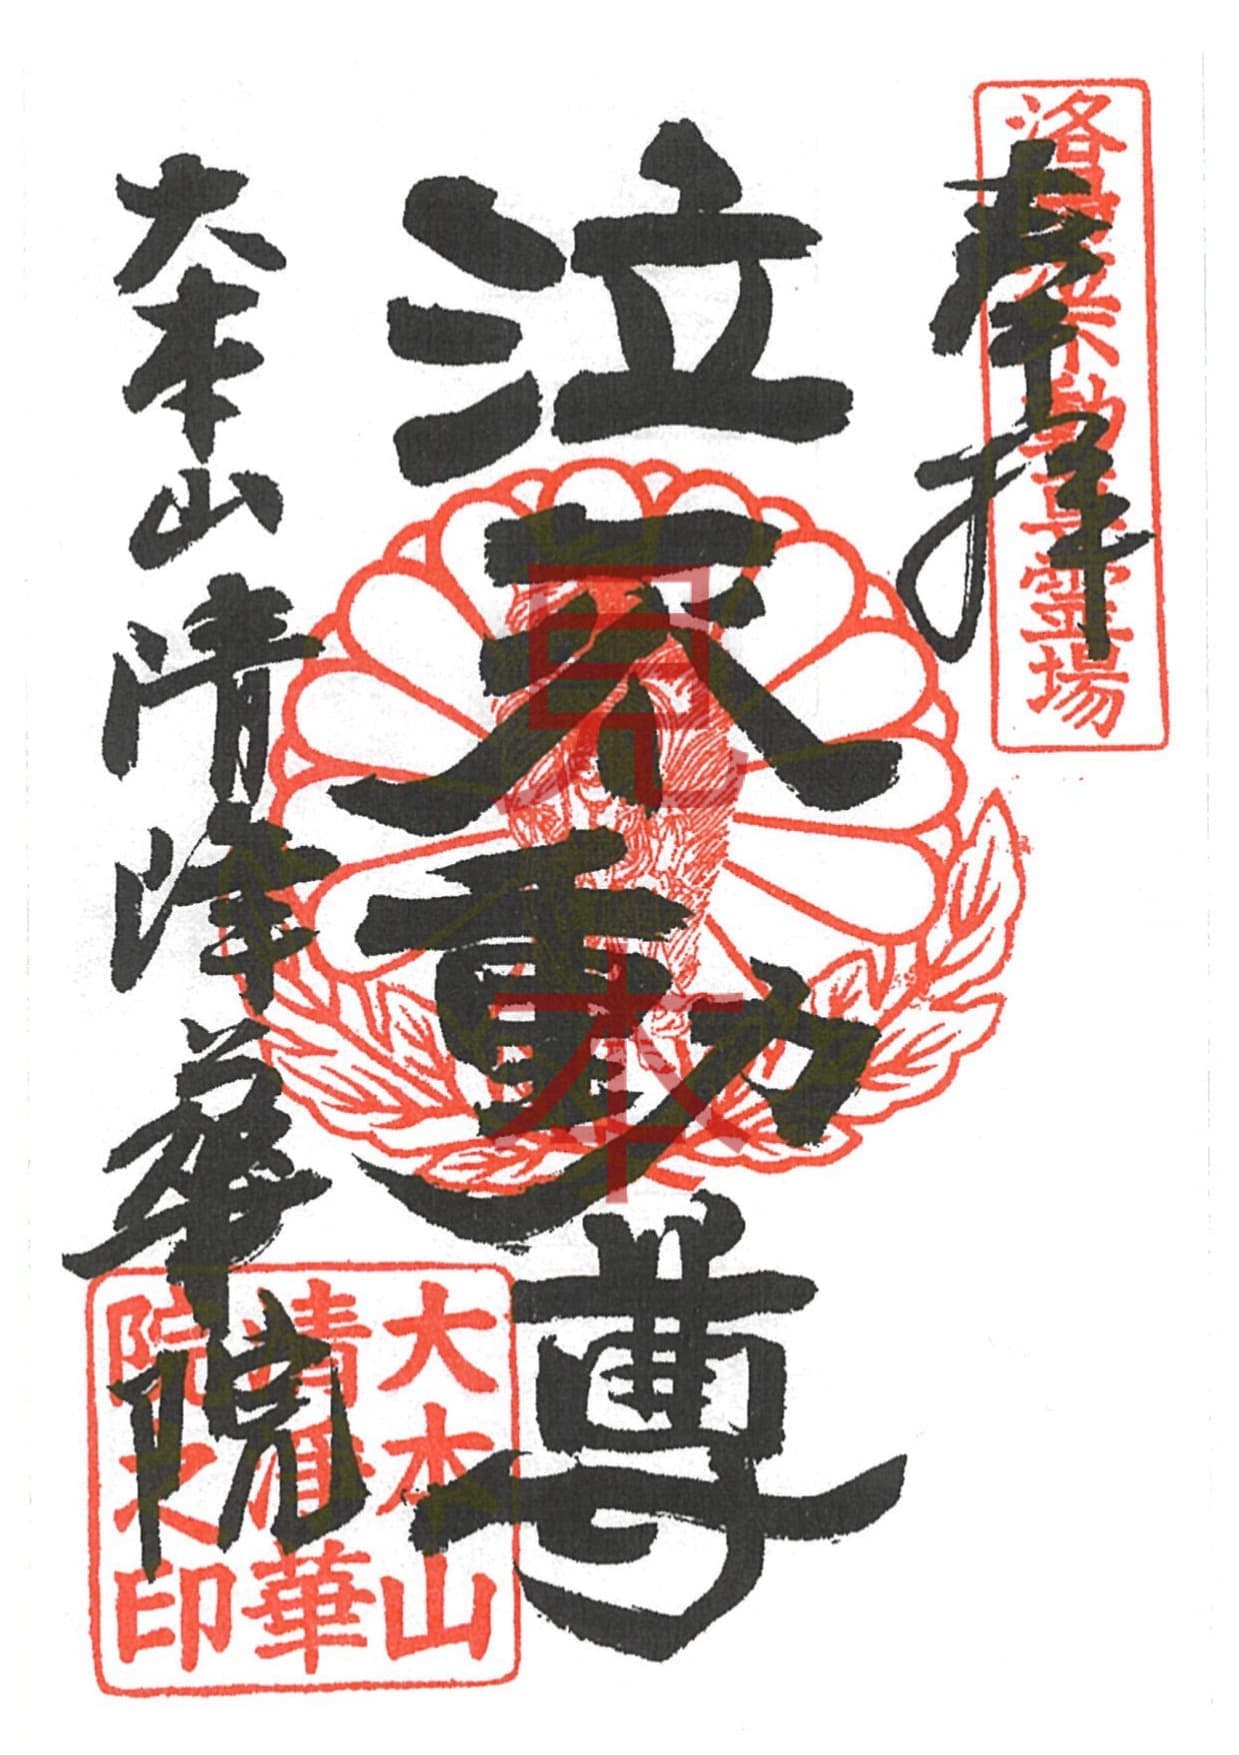 洛陽泣不動尊霊場
奉拝
泣不動尊
見本
大本山清浄華院
大本山
清浄華
院之印